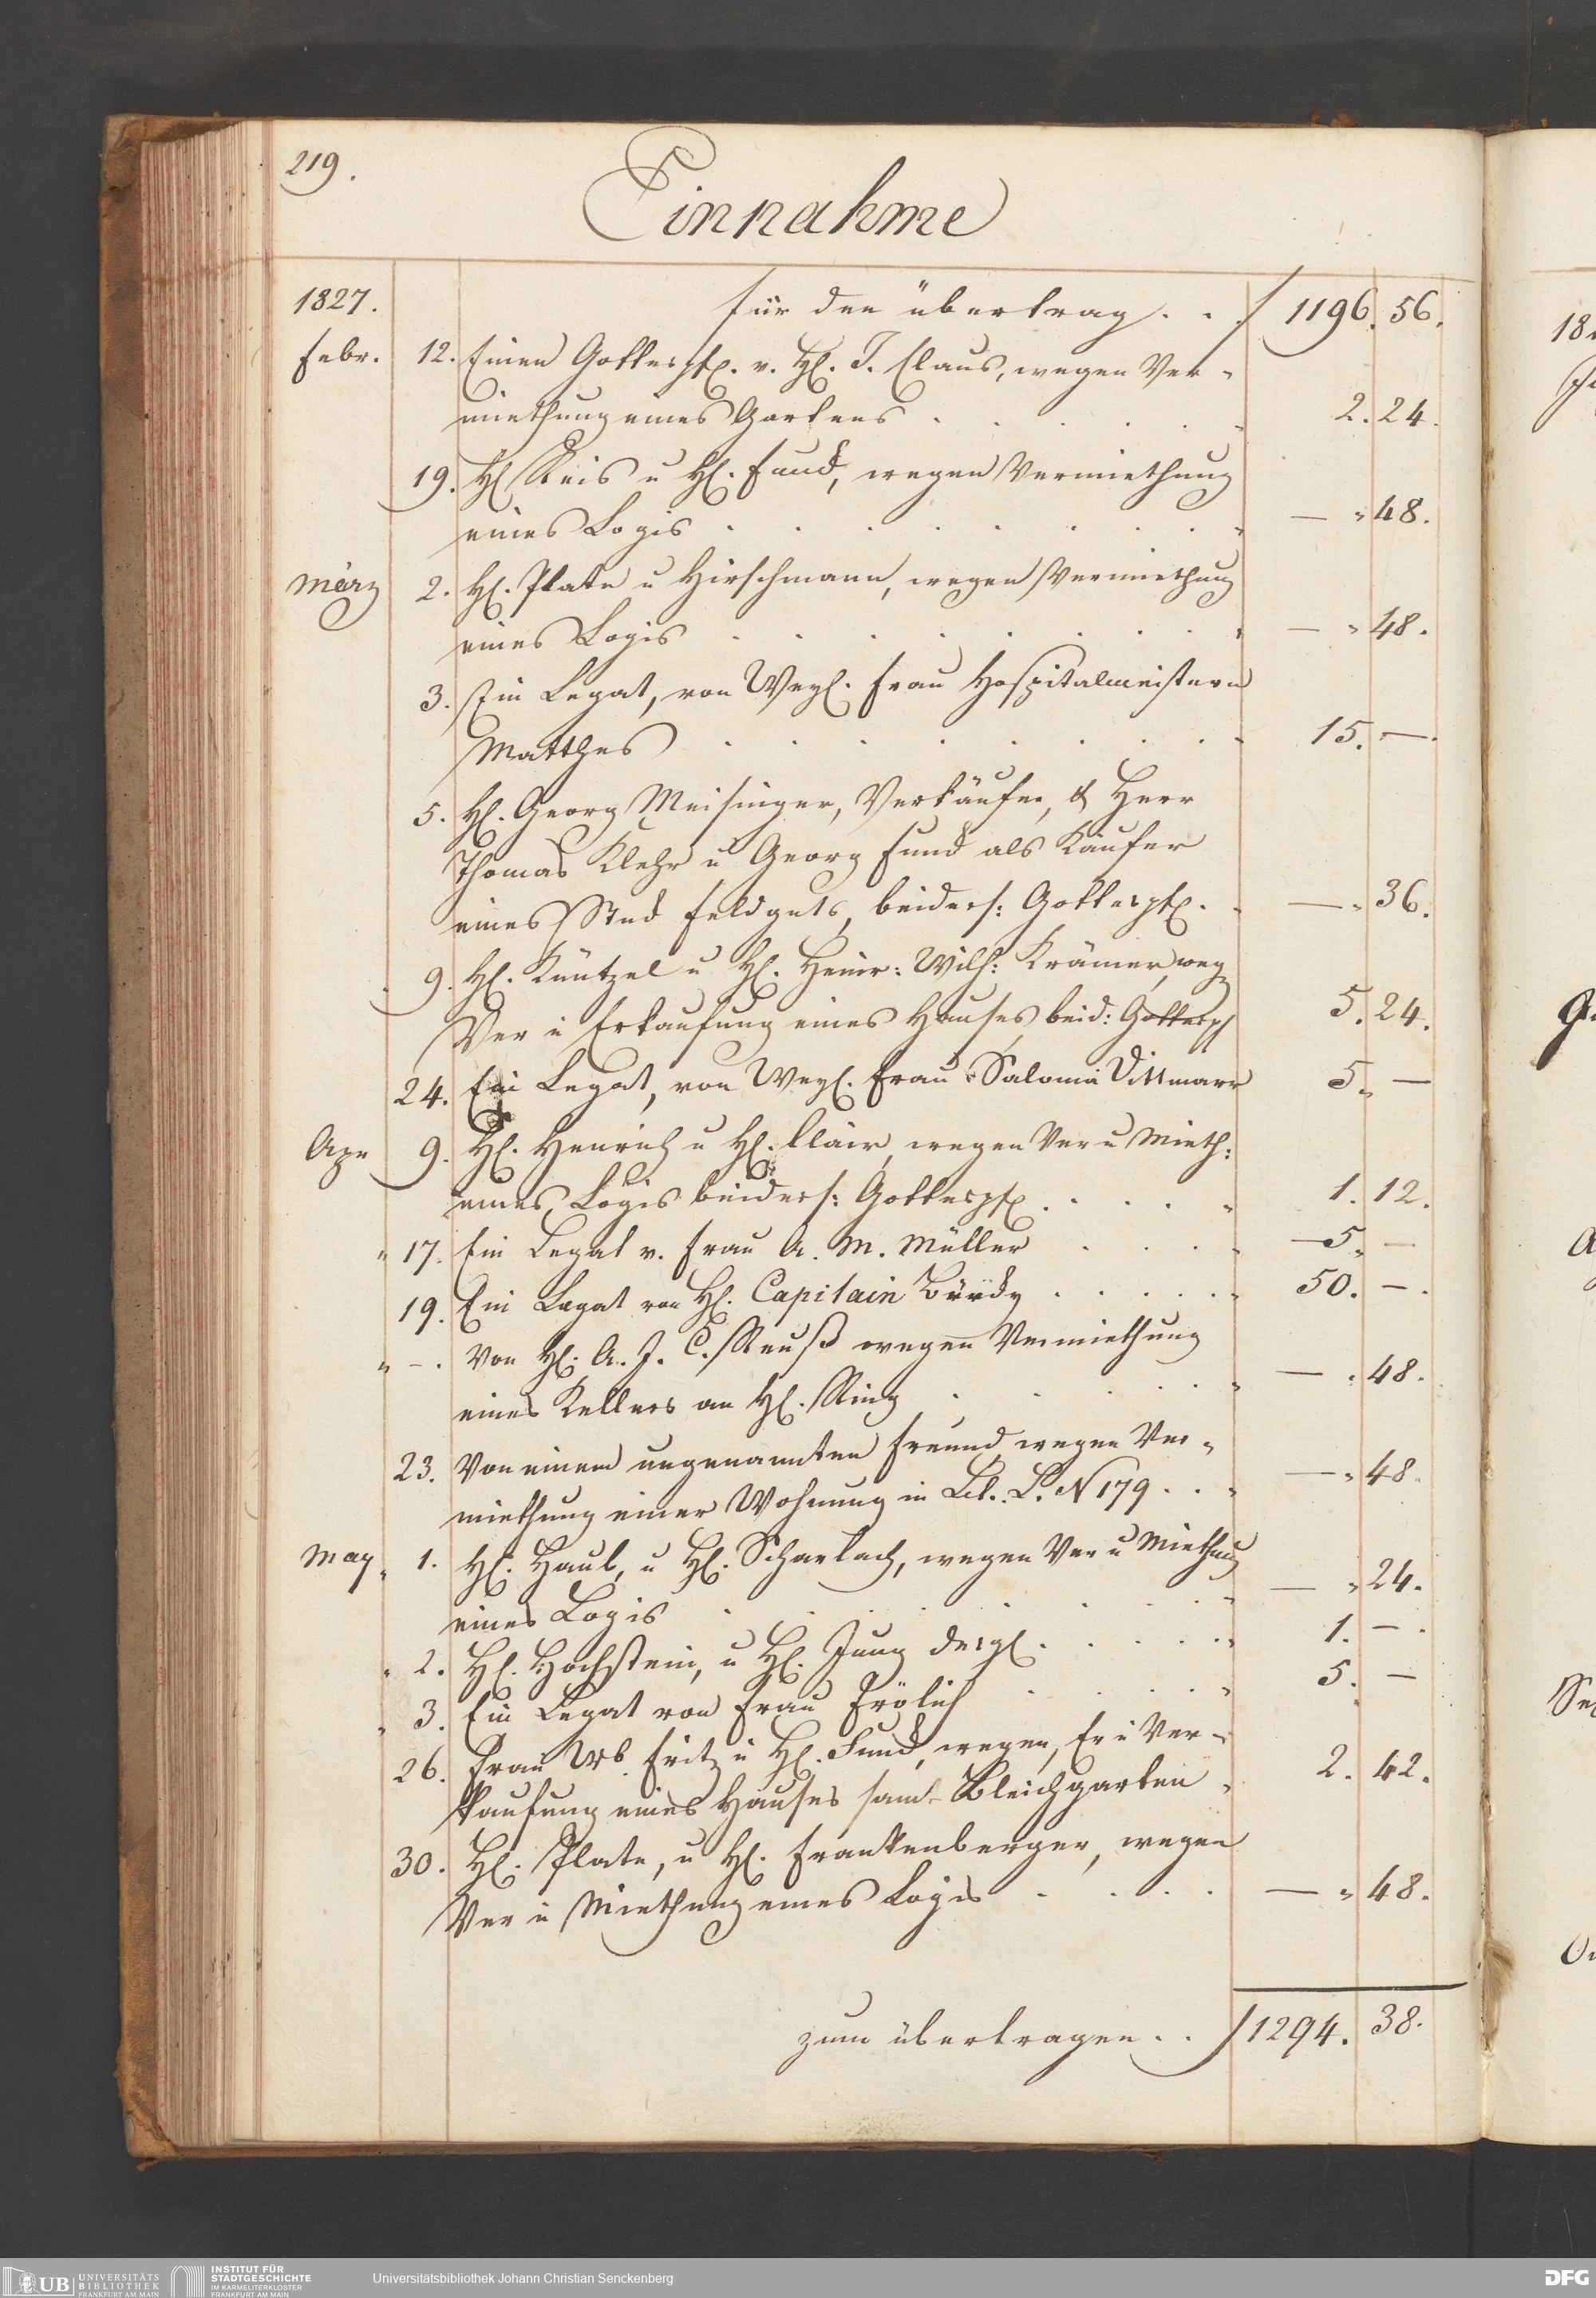 219.
Einnahme
1827. für den übertrag . . f 1196. 56.
Febr. 12. Einen Gottespf. v. H. J. Claus, wegen Ver-
miethung eines Gartens . . . . . 2. 24.
19. H Reis u H. Fund, wegen Vermiethung
eines Logis . . . . . . . . — " 48.
März 2. H. Plate u Hirschmann, wegen Vermiethung
eines Logis . . . . . . . . — " 48.
3. Ein Legat, von Weyl. Frau Hospitalmeistern
Matthes . . . . . . . . 15. —.
5. H. Georg Meisinger, Verkäufer, & Herr
Thomas Klehr u Georg Fund als Käufer
eines Stück Feldguts, beiders: Gottespf. . — " 36.
9. H. Küntzel u H. Heinr: Wilh: Krämer, weg
Ver u Erkaufung eines Hauses, beid: Gottespf 5. 24.
24. Ein Legat, von Weyl. Frau Saloma Dittmarr 5. —
Apr 9. H. Henrich u H. Clair, wegen Ver u Mieth:
eines Logis beiders: Gottespf . . . . 1. 12.
" 17. Ein Legat v. Frau A. M. Müller . . . . 5. —
19. Ein Legat von H. Capitain . . . . . 50. — .
" — . Von H. A. J. C. Reuß wegen Vermiethung
eines Kellers an H. Ring . . . . . — . 48.
23. Von einem ungenannten Freund wegen Ver-
miethung einer Wohnung in Lit. L. N 179 . . . — " 48.
May " 1. H. Haub, u H. Scharlach, wegen Ver u Miethung
eines Logis . . . . . . . — " 24.
" 2. H. Hochstein, u H. Jung desgl . . . . . 1. — .
" 3. Ein Legat von Frau Frölich . . . . 5. —
26. Frau Wb. Fritz u H. Fund, wegen, Er u Ver-
kaufung eines Hauses samt Bleichgarten . 2. 42.
30. H. Plate, u H. Frankenberger, wegen
Ver u Miethung eines Logis . . . . — " 48.
zum übertragen . . f 1294. 38.
UB UNIVERSITÄTS
BIBLIOTHEK
FRANKFURT AM MAIN
INSTITUT FÜR
STADTGESCHICHTE
IM KARMELITERKLOSTER
FRANKFURT AM MAIN
Universitätsbibliothek Johann Christian Senckenberg
DFG